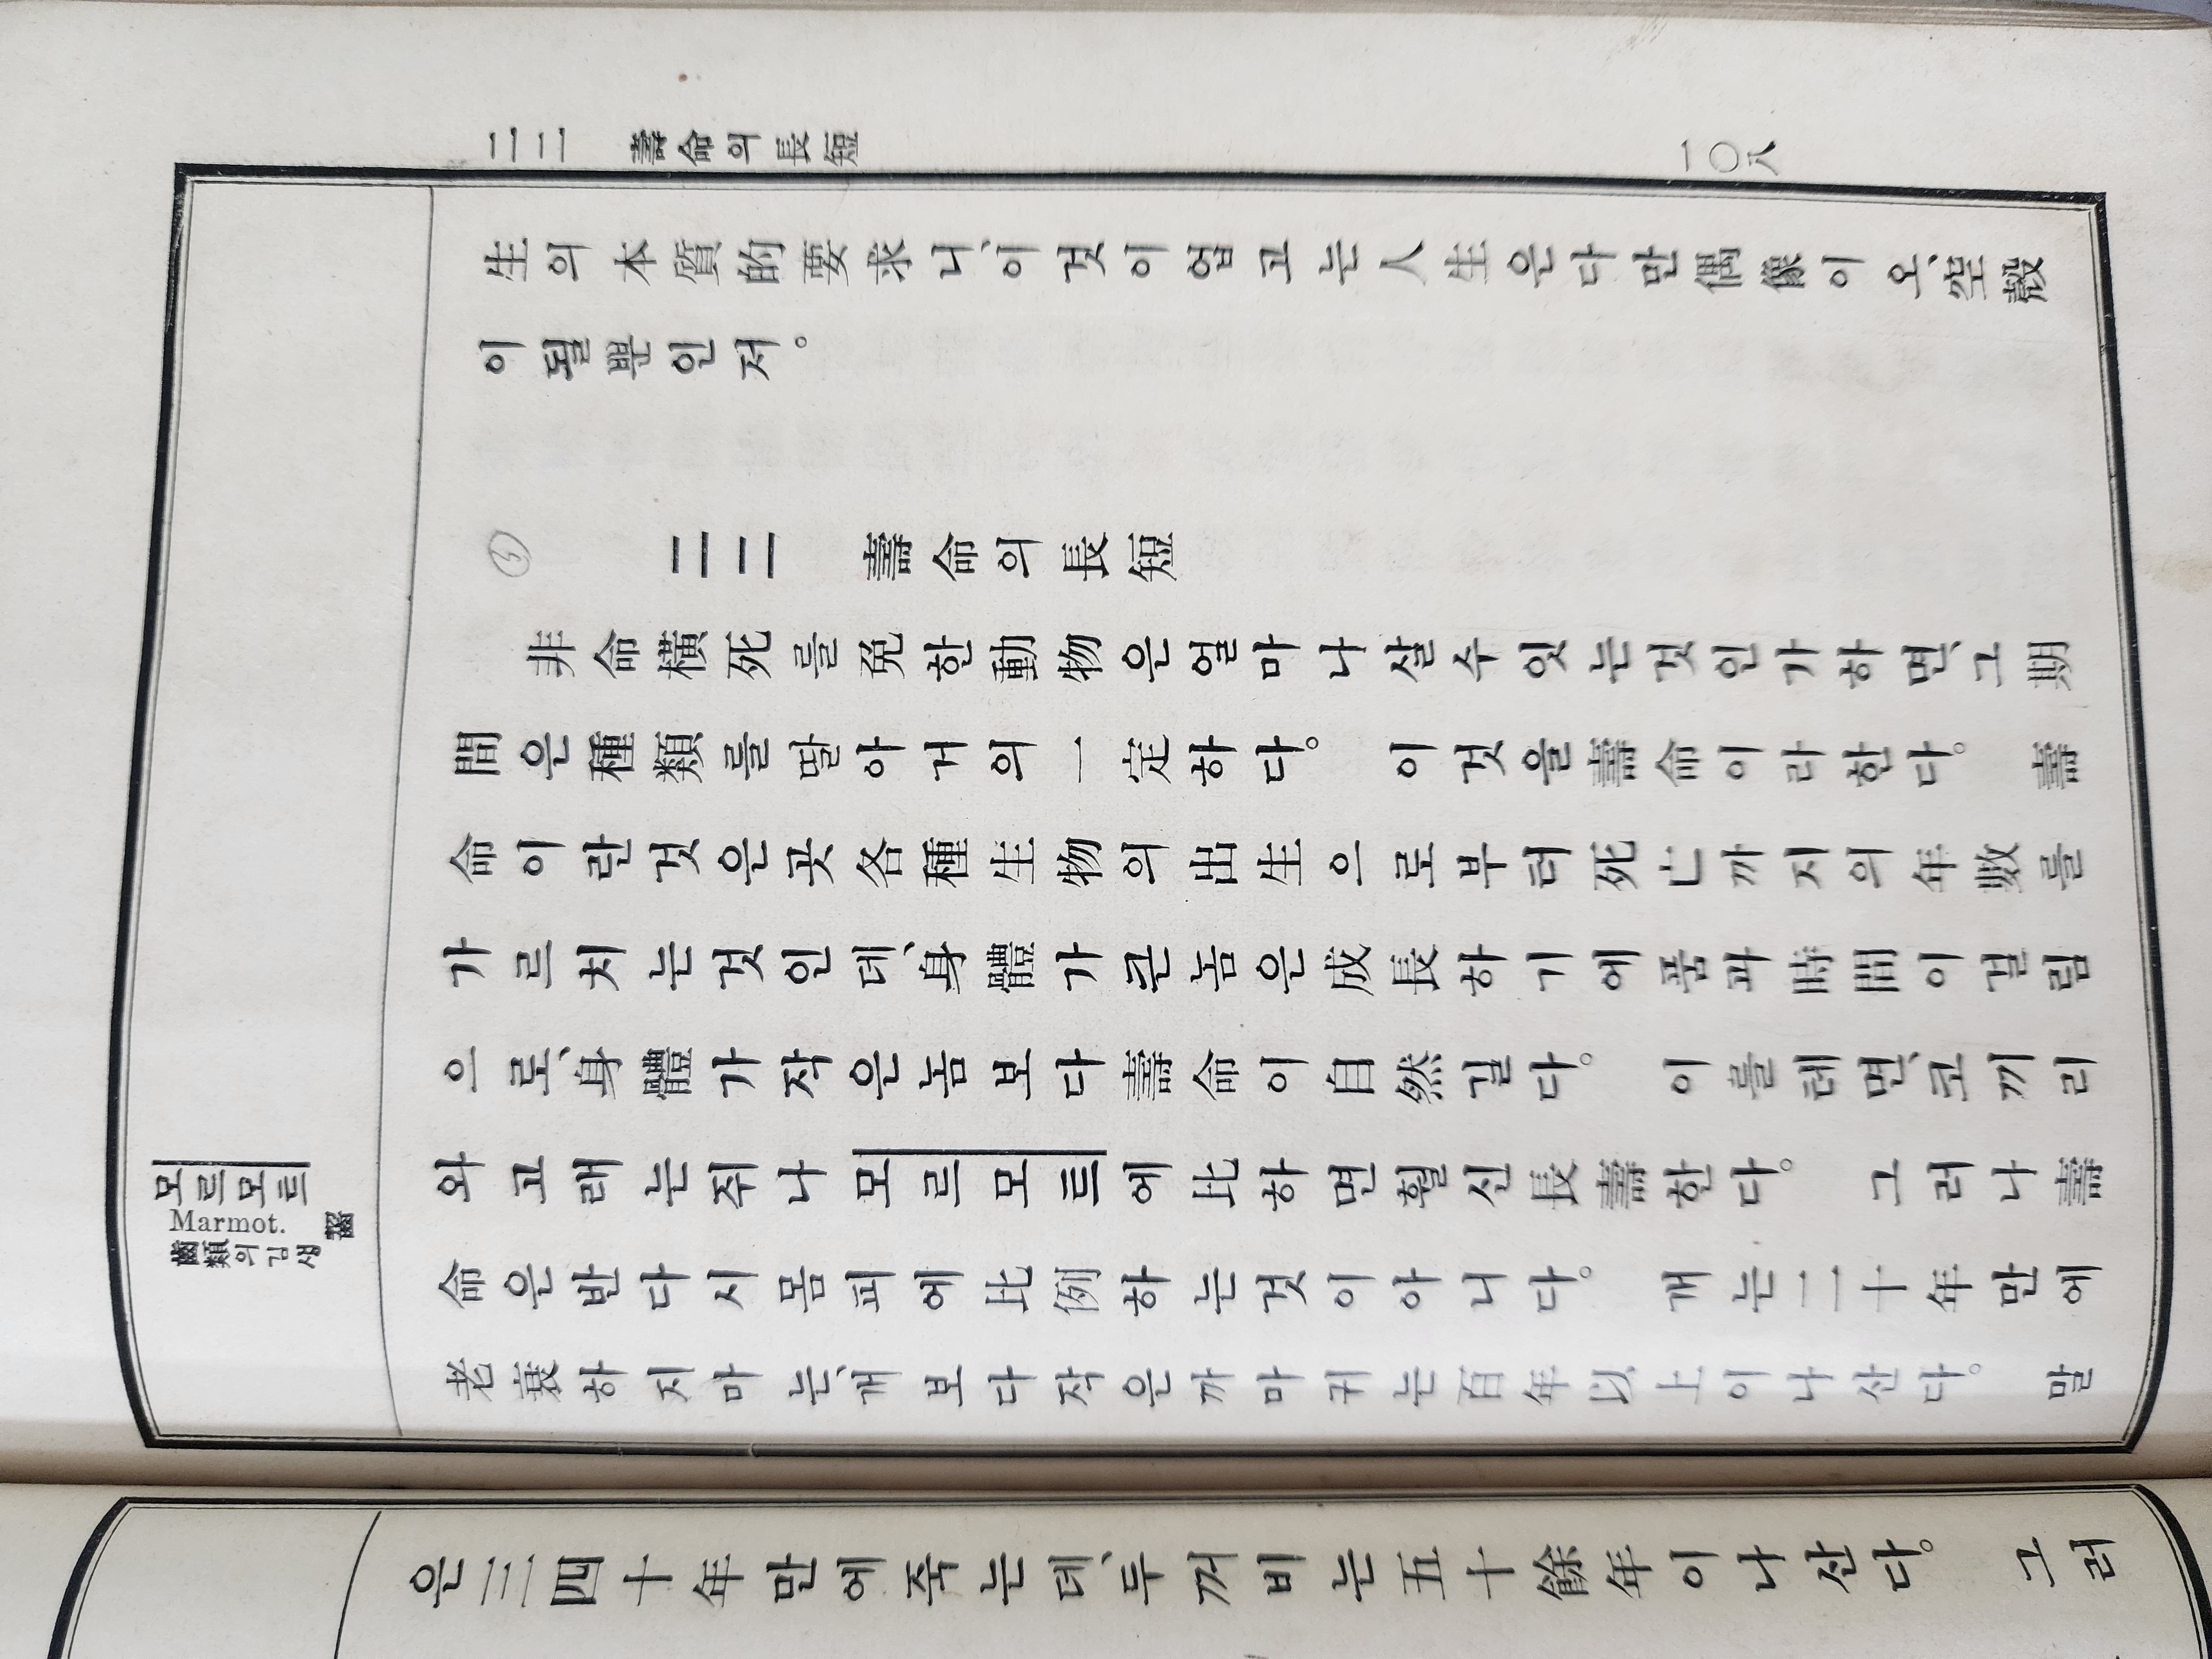 二二 壽命의長短
一〇八
生의本質的要求니、이것이업고는人生은다만偶像이오、空殼
이될뿐인저。
5
二二 壽命의長短
非命橫死를免한動物은얼마나살수잇는것인가하면、그期
間은種類를딸아거의一定하다。 이것을壽命이라한다。 壽
命이란것은곳各種生物의出生으로부터死亡까지의年數를
가르치는것인데、身體가큰놈은成長하기에품과時間이걸림
으로、身體가작은놈보다壽命이自然길다。 이를테면、코끼리
와고래는쥐나모르모트에比하면훨신長壽한다。 그러나壽
命은반다시몸피에比例하는것이아니다。 개는二十年만에
老衰하지마는、개보다작은까마귀는百年以上이나산다。 말
모르모트
Marmot. 齧
齒類의김생
은三四十年만에죽는데、두꺼비는五十餘年이나산다。 그러